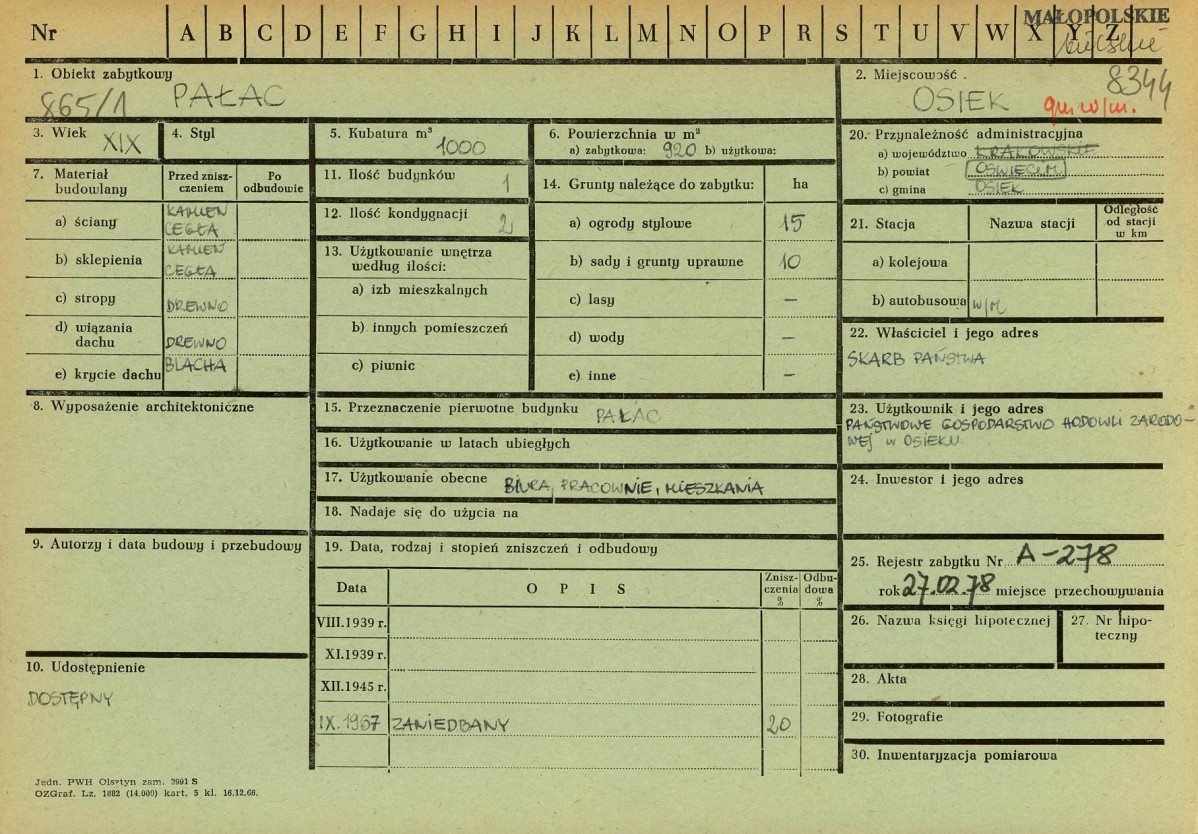 Nr A B C D E F G H I J K L M N O P R S T U V W X Y Z
MAŁOPOLSKIE
1. Obiekt zabytkowy
865/1 PAŁAC
2. Miejscowość
8344
OSIEK gm. w/m.
3. Wiek XIX
4. Styl
5. Kubatura m³
1000
6. Powierzchnia w m²
a) zabytkowa: 920 b) użytkowa:
20. Przynależność administracyjna
a) województwo KRAKOWSKIE
b) powiat OŚWIĘCIM
c) gmina OSIEK
7. Materiał budowlany
Przed znisz-
czeniem
Po
odbudowie
a) ściany KAMIEŃ
CEGŁA
b) sklepienia KAMIEŃ
CEGŁA
c) stropy DREWNO
d) wiązania
dachu DREWNO
e) krycie dachu BLACHA
8. Wyposażenie architektoniczne
9. Autorzy i data budowy i przebudowy
10. Udostępnienie
DOSTĘPNY
11. Ilość budynków 1
12. Ilość kondygnacji 2
13. Użytkowanie wnętrza
według ilości:
a) izb mieszkalnych
b) innych pomieszczeń
c) piwnic
14. Grunty należące do zabytku: ha
a) ogrody stylowe 15
b) sady i grunty uprawne 10
c) lasy —
d) wody —
e) inne —
15. Przeznaczenie pierwotne budynku PAŁAC
16. Użytkowanie w latach ubiegłych
17. Użytkowanie obecne BIURA, PRACOWNIE, MIESZKANIA
18. Nadaje się do użycia na
19. Data, rodzaj i stopień zniszczeń i odbudowy
Data O P I S Znisz-
czenia
%
Odbu-
dowa
%
VIII.1939 r.
XI.1939 r.
XII.1945 r.
IX.1967 ZANIEDBANY 20
21. Stacja Nazwa stacji Odległość
od stacji
w km
a) kolejowa
b) autobusowa W/M
22. Właściciel i jego adres
SKARB PAŃSTWA
23. Użytkownik i jego adres
PAŃSTWOWE GOSPODARSTWO HODOWLI ZARODO-
WEJ W OSIEKU
24. Inwestor i jego adres
25. Rejestr zabytku Nr A-278
rok 27.02.78 miejsce przechowywania
26. Nazwa księgi hipotecznej
27. Nr hipo-
teczny
28. Akta
29. Fotografie
30. Inwentaryzacja pomiarowa
Jedn. PWH Olsztyn zam. 3991 S
OZGraf. Lz. 1882 (14.000) kart. 5 kl. 16.12.66.